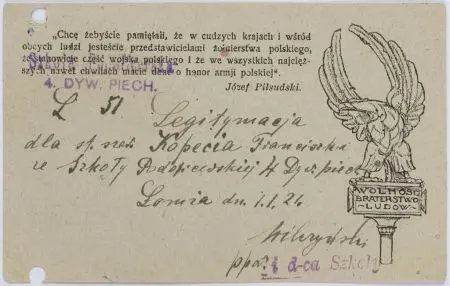 „Chcę żebyście pamiętali, że w cudzych krajach i wśród
obcych ludzi jesteście przedstawicielami żołnierstwa polskiego,
że stanowicie część wojska polskiego i że we wszystkich najcięż-
szych nawet chwilach macie dbać o honor armji polskiej“.
Józef Piłsudski.
4. DYW. PIECH.
L 51
Legitymacja
dla st. szer. Kopecia Franciszka
ze Szkoły Podoficerskiej 4 Dyw. piech
Łomża dn. 1.1.21
ppor. i d-ca Szkoły
WOLNOŚĆ
BRATERSTWO
LUDÓW